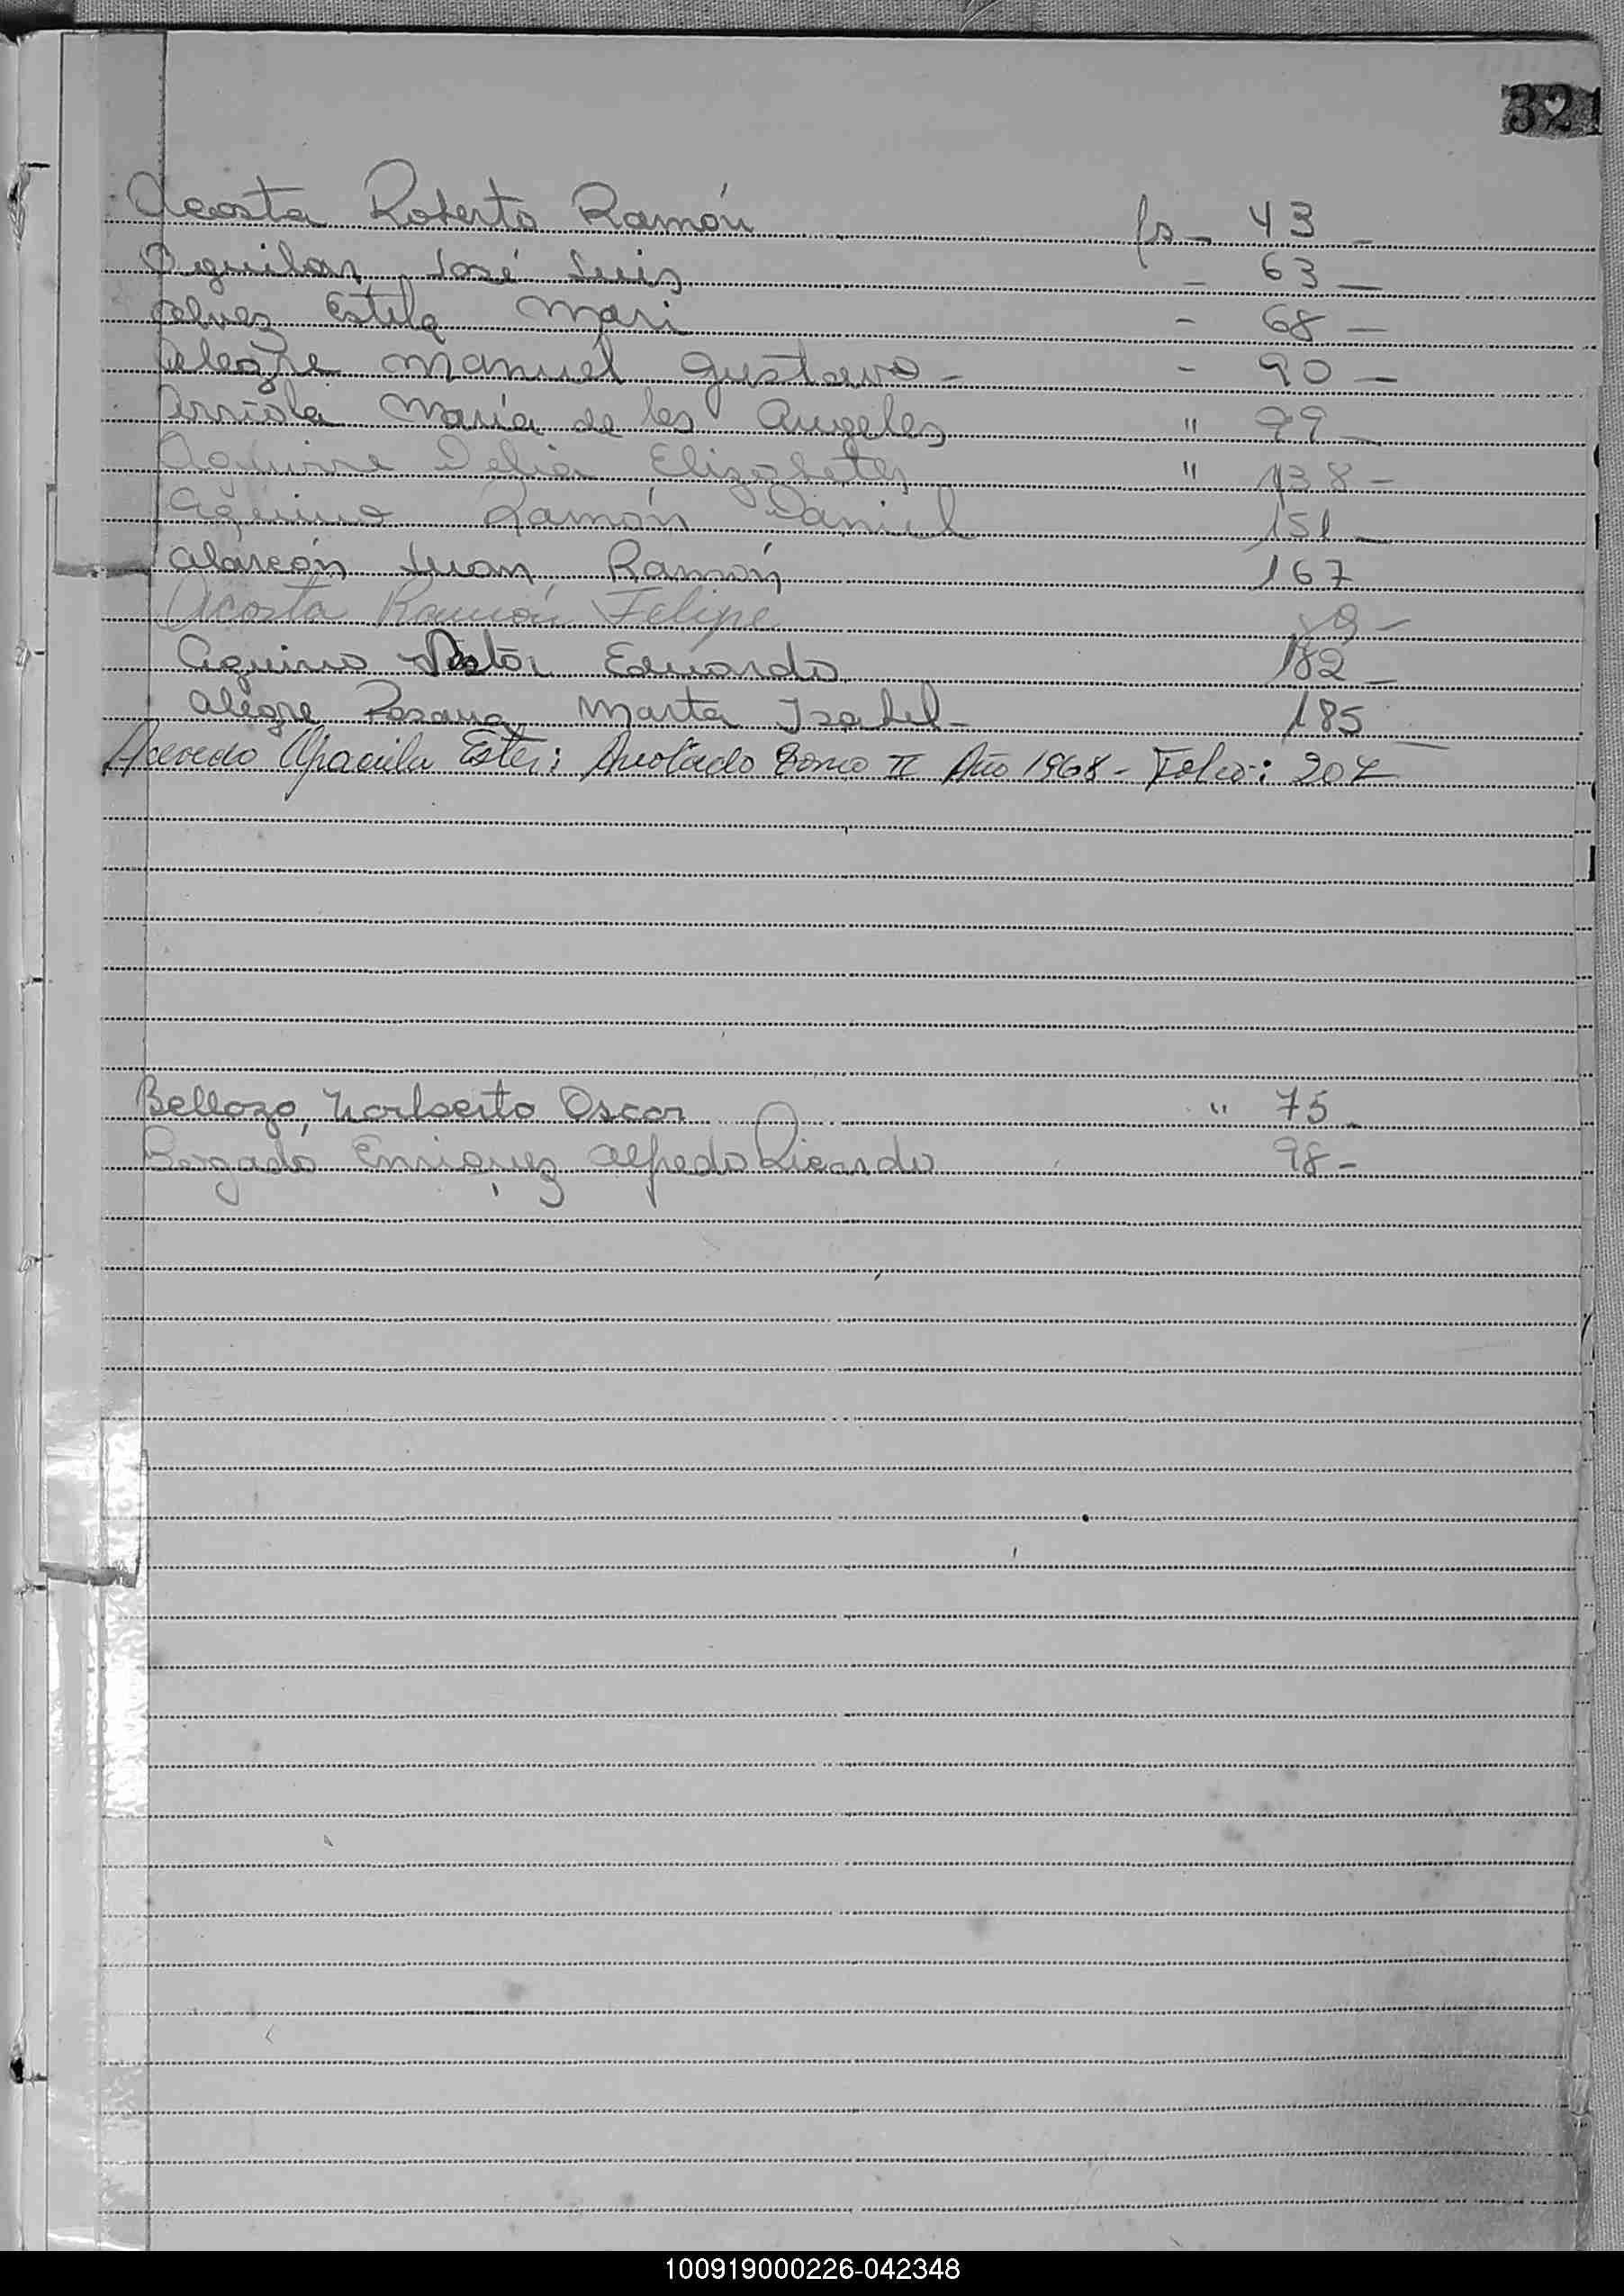 321
Acosta Roberto Ramón fs - 43 -
Aguilar José Luis - 63 -
Alvez Estela Mari - 68 -
Alegre Manuel Gustavo - - 90 -
Arriola María de los Angeles " 99 -
Aguirre Delia Elizabeth " 138 -
Aquino Ramón Daniel 151 -
Alarcón Juan Ramón 167
Acosta Ramón Felipe
Aquino Nestor Eduardo 182 -
Alegre Rosana Marta Isabel - 185 -
Acevedo Ester: Anotado Tomo II Año 1968 - Folio: 207
Bellozo, Norberto Oscar " 75 -
Enriquez Alfredo Ricardo 98 -
100919000226-042348